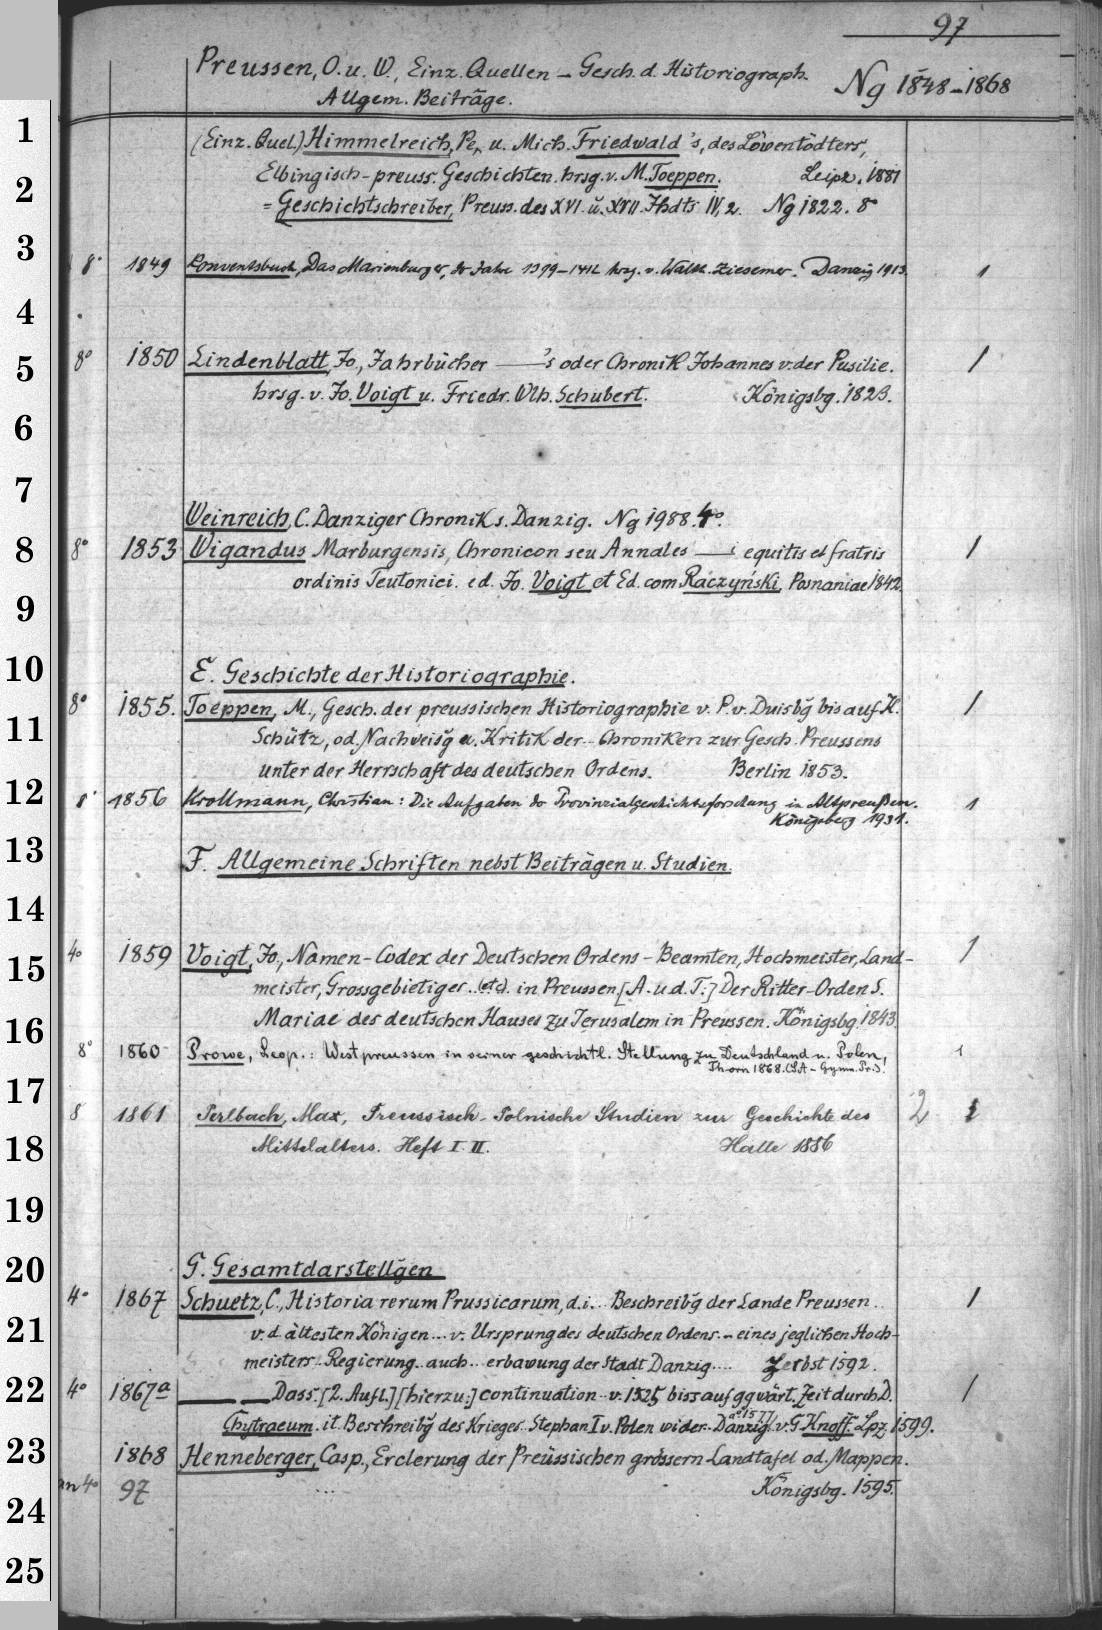 97
Preussen, O. u. W., Einz. Quellen – Gesch. d. Historiograph. Ng 1848–1868
Allgem. Beiträge.
1
(Einz. Quel.) Himmelreich, Pe, u. Mich. Friedwald's, des Löwentödters,
2
Elbingisch-preuss. Geschichten hrsg. v. M. Toeppen. Leipz. 1881
= Geschichtschreiber, Preuss. des XVI. u. XVII. Jhdts IV, 2. Ng 1822. 8°
3
8° 1849 Konventsbuch, Das Marienburger, der Jahre 1399–1412 hrsg. v. Walth. Ziesemer. Danzig 1913. 1
4
5
8° 1850 Lindenblatt, Jo., Jahrbücher ——'s oder Chronik Johannes v. der Pusilie. 1
hrsg. v. Jo. Voigt u. Friedr. Wlh. Schubert. Königsbg. 1823.
6
7
Weinreich, C. Danziger Chronik s. Danzig. Ng 1988. 4°.
8
8° 1853 Wigandus Marburgensis, Chronicon seu Annales ——i equitis et fratris 1
ordinis Teutonici. ed. Jo. Voigt et Ed. com Raczyński. Posnaniae 1842.
9
10
E. Geschichte der Historiographie.
8° 1855. Toeppen, M., Gesch. der preussischen Historiographie v. P. v. Duisbg̃ bis auf K. 1
11
Schütz, od. Nachweisg̃ u. Kritik der .. Chroniken zur Gesch. Preussens
unter der Herrschaft des deutschen Ordens. Berlin 1853.
12
8° 1856 Krollmann, Christian: Die Aufgaben der Provinzialgeschichtsforschung in Altpreußen. 1
Königsberg 1931.
13
F. Allgemeine Schriften nebst Beiträgen u. Studien.
14
15
4° 1859 Voigt, Jo., Namen-Codex der Deutschen Ordens-Beamten, Hochmeister, Land- 1
meister, Grossgebietiger .. (etc). in Preussen [A. u. d. T.:] Der Ritter-Orden S.
16
Mariae des deutschen Hauses zu Jerusalem in Preussen. Königsbg. 1843.
8° 1860 Prowe, Leop.: Westpreussen in seiner geschichtl. Stellung zu Deutschland u. Polen, 1
Thorn 1868. (SA – Gymn. Pr.).
17
8 1861 Perlbach, Max, Preussisch-Polnische Studien zur Geschichte des 2
18
Mittelalters. Heft I. II. Halle 1886
19
20
G. Gesamtdarstellg̃en
4° 1867 Schuetz, C., Historia rerum Prussicarum, d. i. .. Beschreibg̃ der Lande Preussen .. 1
21
v. d. ältesten Königen ... v. Ursprung des deutschen Ordens .. eines jeglichen Hoch-
meisters .. Regierung .. auch .. erbawung der Stadt Danzig .... Zerbst 1592.
22
4° 1867a —— —— Dass. [2. Aufl.] [hierzu:] continuation .. v. 1525 biss auf ggwärt. Zeit durch D. 1
Chytraeum. it. Beschreibg̃ des Krieges .. Stephan I v. Polen wider .. Danzig ao 1577 v. G. Knoff. Lpz 1599.
23
1868 Henneberger, Casp., Erclerung der Preüssischen grössern Landtafel od. Mappen.
an 4° 97 ... Königsbg. 1595.
24
25